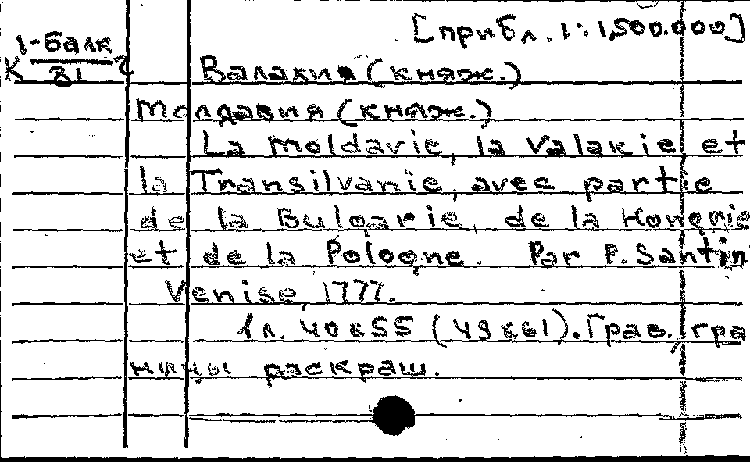 [прибл. 1:1,500.000]
К 1-Балк/31
Валахия (княж.)
Молдавия (княж.)
La Moldavie, la Valakie et
la Transilvanie, avec partie
de la Bulgarie, de la Hongrie
et de la Pologne. Par P. Santin
Venise, 1777.
1 л. 40 x 55 (49 x 61). Грав., гра
ницы раскраш.